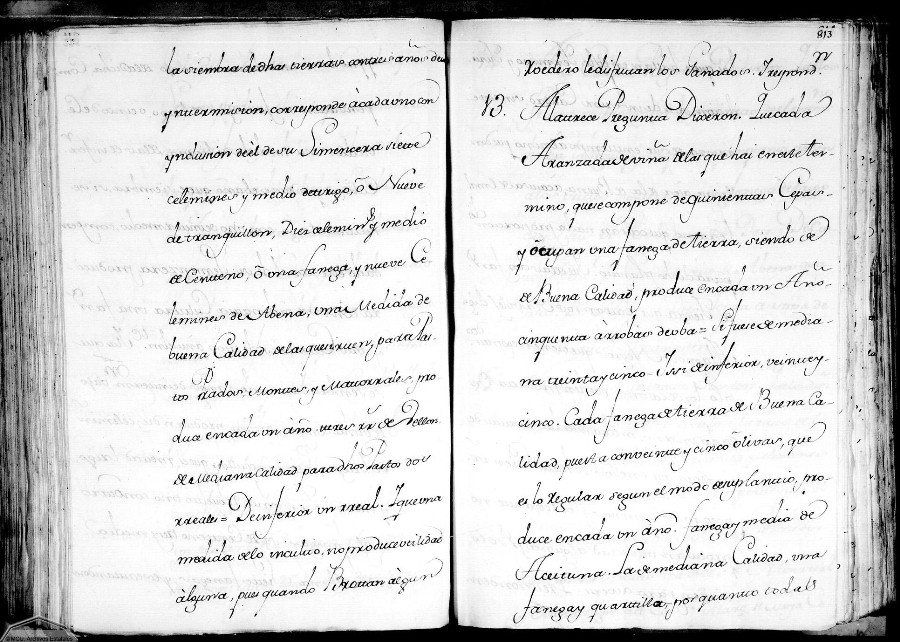 la siembra de dhas tierras contres años de
ynttermision, corresponde àcada vno con
ynclusion de èl de su Simencera siette
celemines y medio de trigo, ò Nueve
de tranquillon, Diez celemins y medio
de Centteno, ò vna fanega, y nueve Ce-
lemines de Abena, vna Medida de
buena Calidad de las que sirven, para Pas-
tos Prados, Monttes, y Mattorrales, pro
duce encada vn año tres rrs de Vellon
de Mediana Calidad para dhos Pastos dos
rreales = De inferior vn rreal. Y que vna
medida de lo incultto, no produce vtilidad
àlguna, pues quando Brottan àlgun
813
Roedero le disfrutan los Ganados. Y respondn
13. Alatrece Pregunta Dixeron. Que cada
Aranzada de viña de las que hai en este ter-
mino, que se compone de quinientas Cepas-
y òcupan vna fanega de tierra, siendo de
de Buena Calidad, produce encada vn Año
cinquenta àrrobas de vba = Si fuese de media-
na treinta y cinco. Y si de inferior, veintey-
cinco. Cada fanega de tierra de Buena Ca-
lidad, puesta con veinte y cinco òlivas, que
es lo Regular segun el modo de su plantio, pro-
duce encada vn año. fanega y media de
Aceituna. La de mediana Calidad, vna
fanega y quartilla, por quanto todas
© MCD. Archivos Estatales